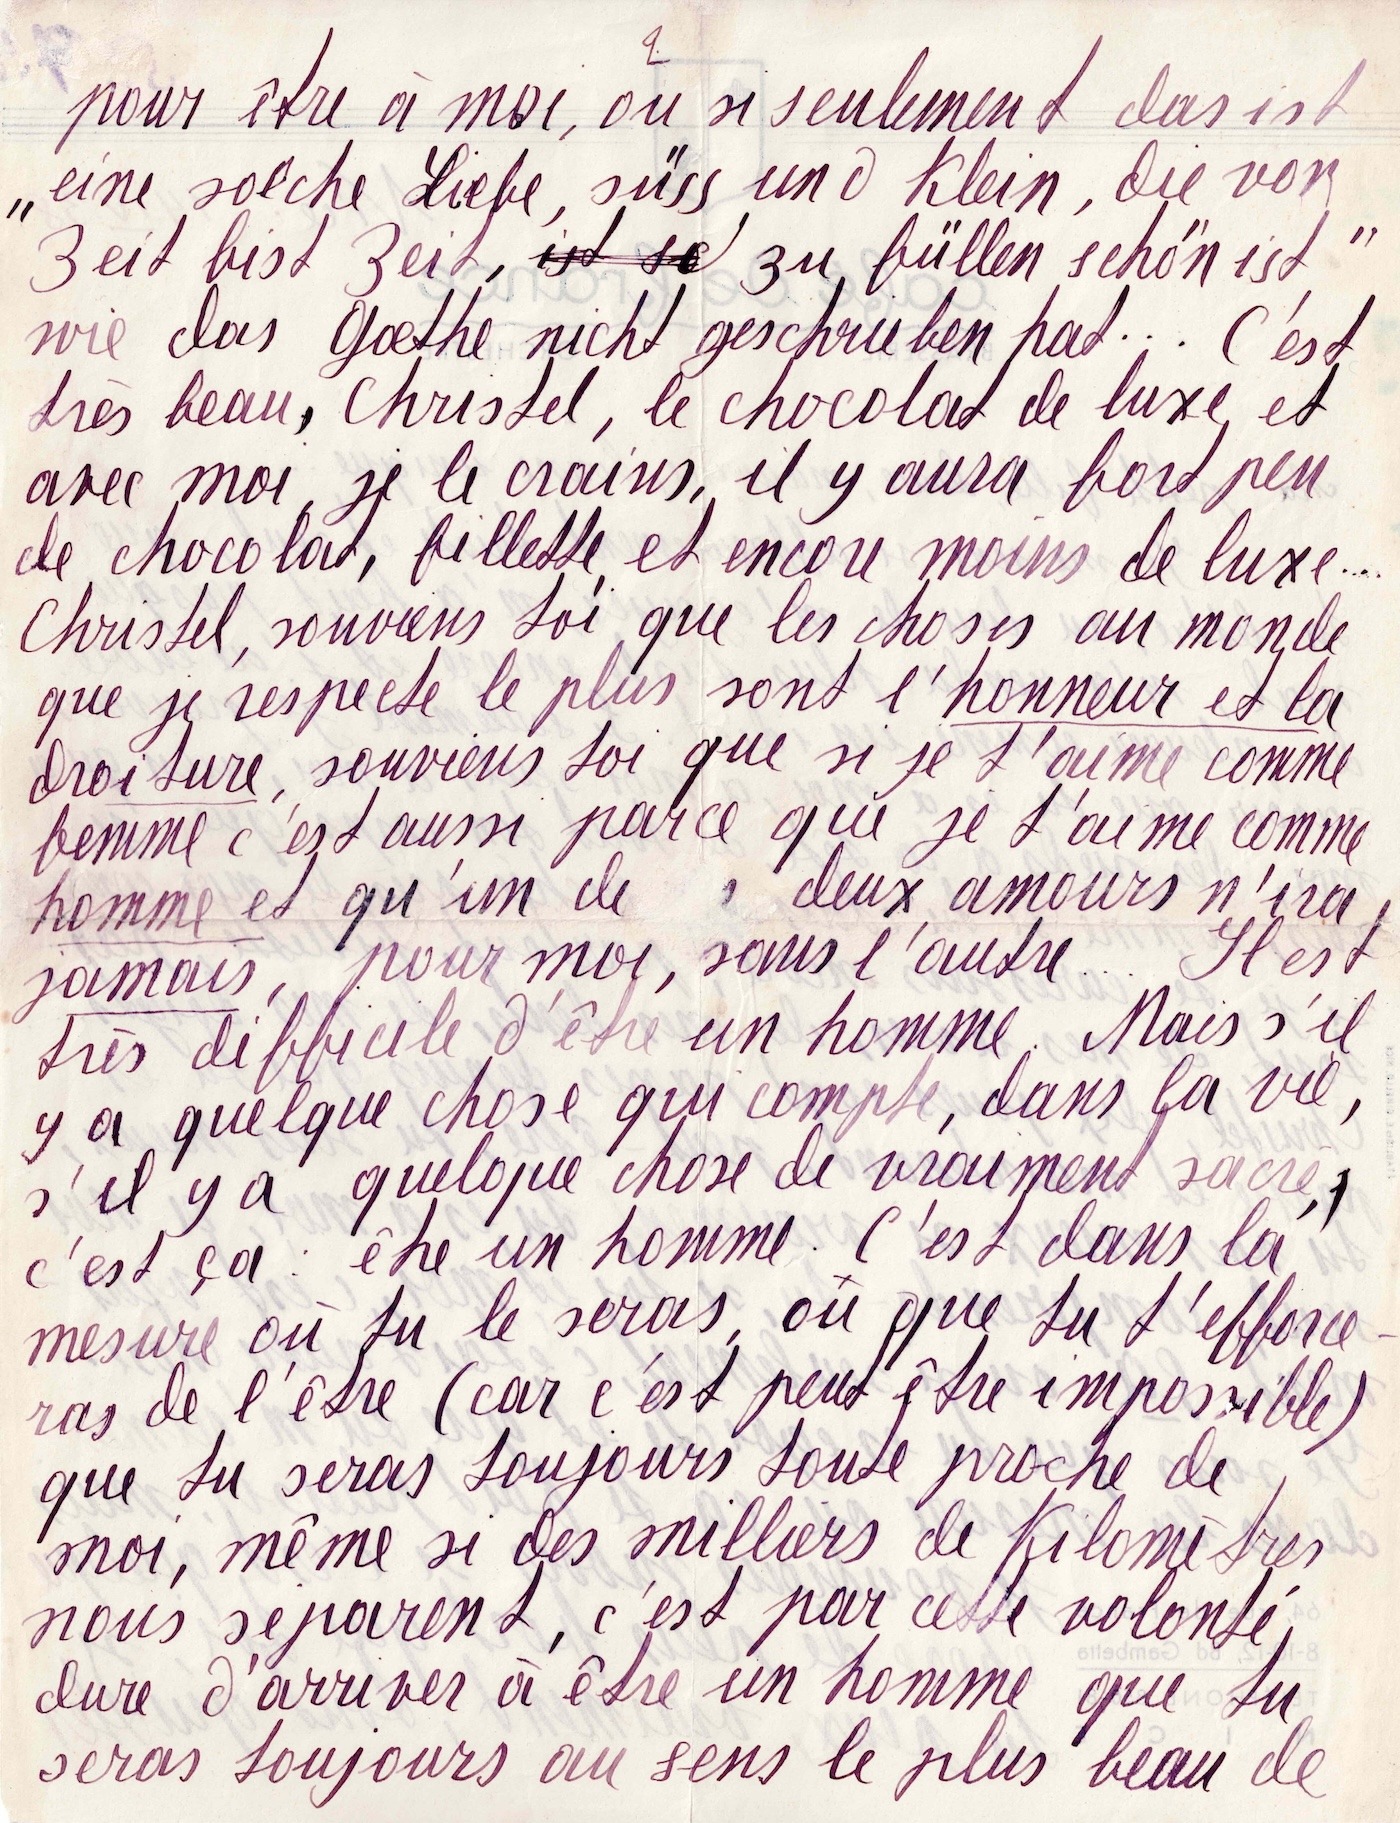 2
pour être à moi, ou si seulement das ist
„eine solche Liebe, süss und Klein, die von
Zeit bist Zeit, ist so zu füllen schön ist"
wie das Goethe nicht geschrieben hat... C'est
très beau, Christel, le chocolat de luxe et
avec moi, je le crains, il y aura fort peu
de chocolat, fillette, et encore moins de luxe...
Christel, souviens toi que les choses au monde
que je respecte le plus sont l'honneur et la
droiture, souviens toi que si je t'aime comme
femme c'est aussi parce que je t'aime comme
homme et qu'un de deux amours n'ira,
jamais, pour moi, sans l'autre... Il est
très difficile d'être un homme. Mais s'il
y a quelque chose qui compte, dans la vie,
s'il y a quelque chose de vraiment sacré,
c'est ça : être un homme. C'est dans la
mesure où tu le seras, où que tu t'efforce-
ras de l'être (car c'est peut être impossible)
que tu seras toujours toute proche de
moi, même si des milliers de Kilomètres
nous séparent, c'est par cette volonté
dure d'arriver à être un homme que tu
seras toujours au sens le plus beau de